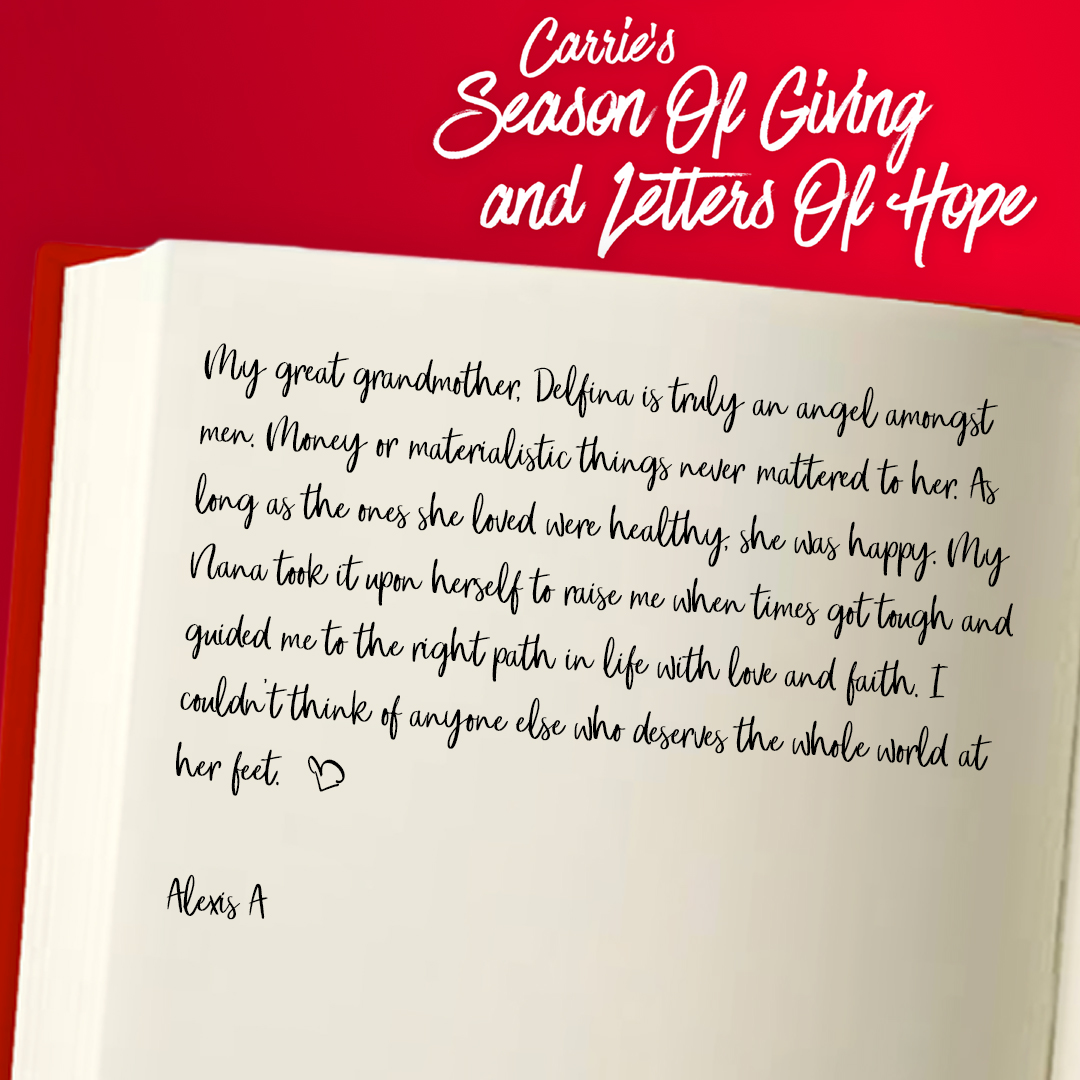 Carrie's
Season Of Giving
and Letters Of Hope
My great grandmother, Delfina is truly an angel amongst
men. Money or materialistic things never mattered to her. As
long as the ones she loved were healthy, she was happy. My
Nana took it upon herself to raise me when times got tough and
guided me to the right path in life with love and faith. I
couldn't think of anyone else who deserves the whole world at
her feet.
Alexis A